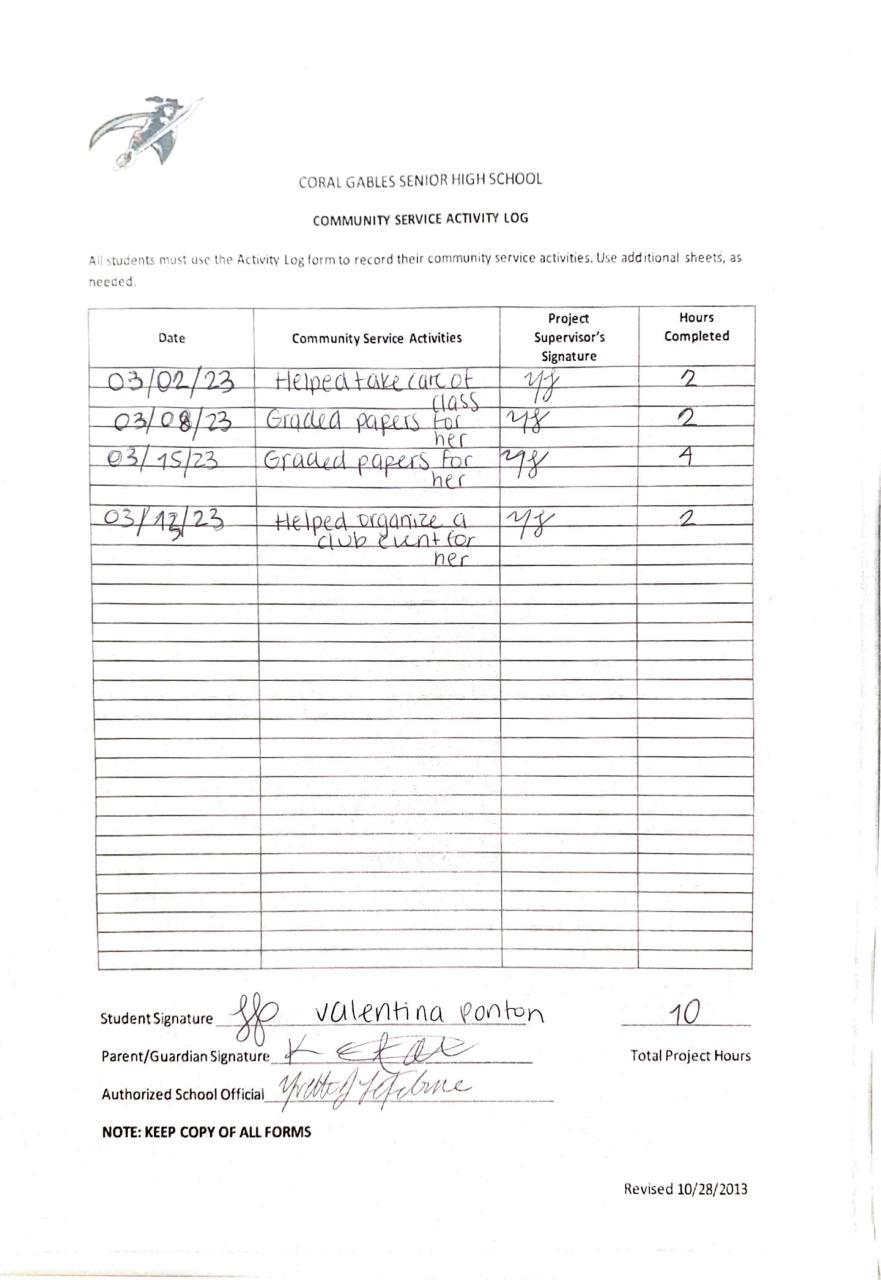 CORAL GABLES SENIOR HIGH SCHOOL
COMMUNITY SERVICE ACTIVITY LOG
All students must use the Activity Log form to record their community service activities. Use additional sheets, as
needed.
Date Community Service Activities Project Supervisor's Signature Hours Completed
03/02/23 Helped take care of yf 2
class
03/08/23 Graded papers for yf 2
her
03/15/23 Graded papers for yf 4
her
03/ /23 Helped organize a yf 2
club event for
her
Student Signature valentina ponton 10
Parent/Guardian Signature Total Project Hours
Authorized School Official
NOTE: KEEP COPY OF ALL FORMS
Revised 10/28/2013